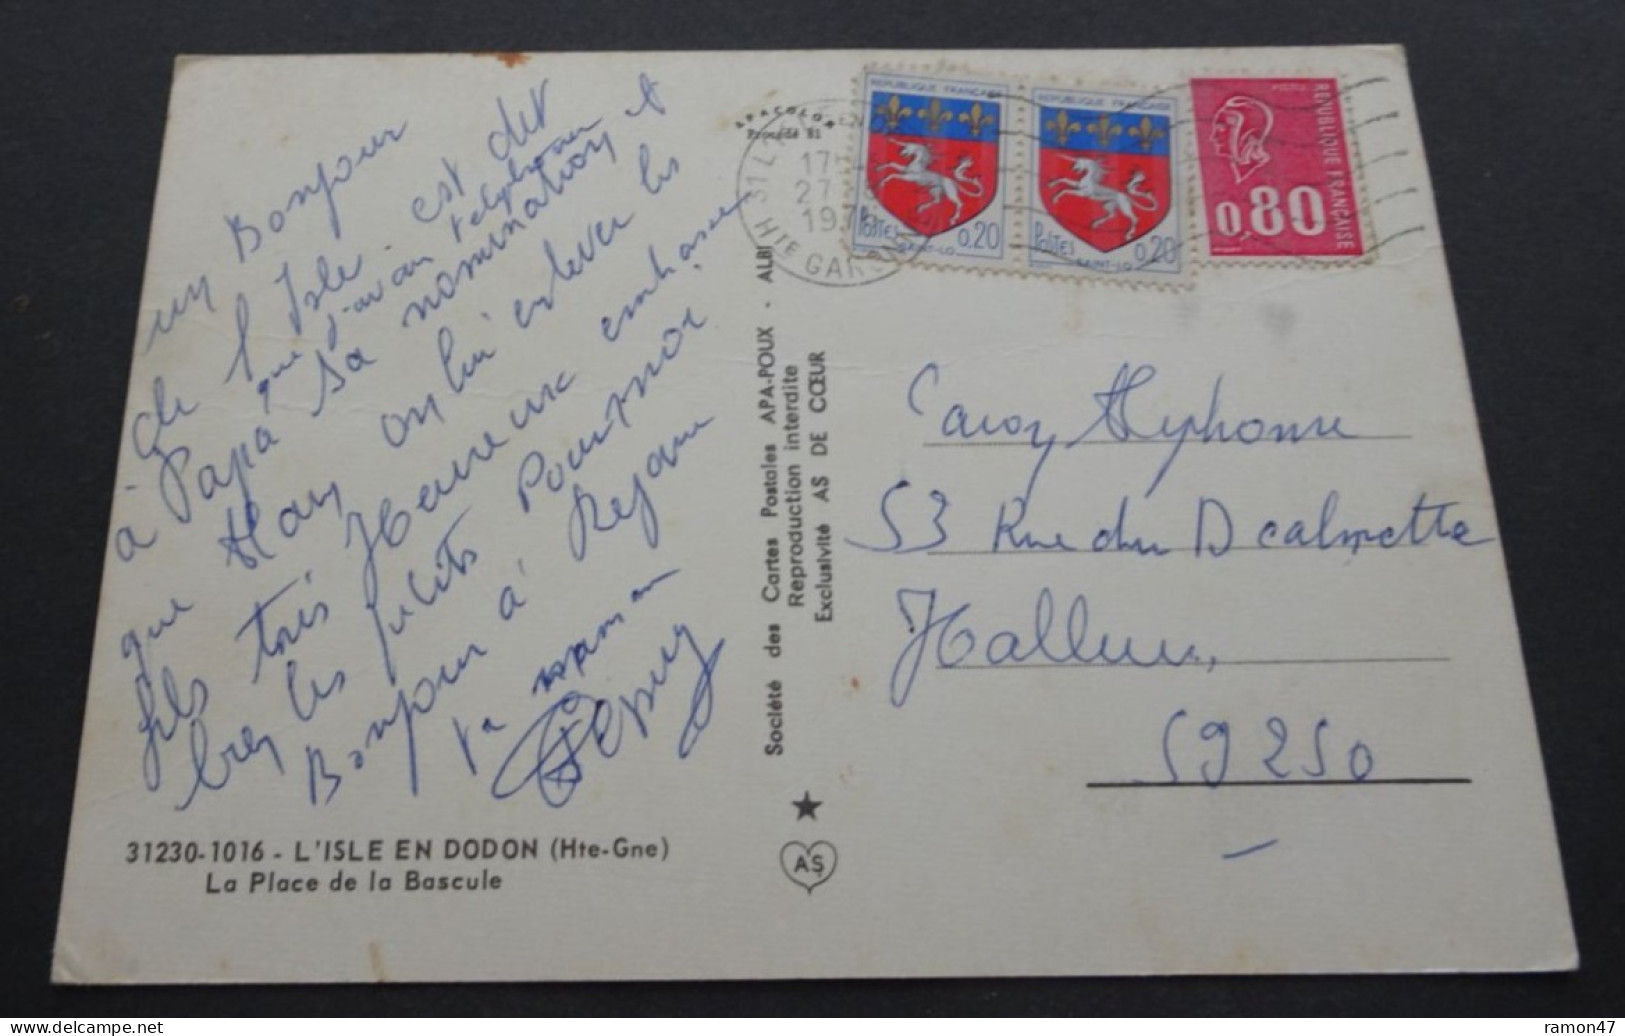 un Bonjour
de l'Isle est det
que j'avais telephoner
à Papa sa nomination, et
que Mary on lui enlever les
fils très Heureux embrasser
bien les petits pour moi
Bonjour à Rejane
ta maman
APACOLOR
Procédé 81
Société des Cartes Postales APA-POUX - ALBI
Reproduction interdite
Exclusivité AS DE CŒUR
AS
31230-1016 - L'ISLE EN DODON (Hte-Gne)
La Place de la Bascule
31 L'
17
27
197
HTE GARONNE
REPUBLIQUE FRANÇAISE
POSTES 0,20
SAINT-LO
REPUBLIQUE FRANÇAISE
POSTES 0,20
SAINT-LO
POSTES
REPUBLIQUE FRANÇAISE
0,80
Caroy Alphonse
53 Rue du D Calmette
Halluin,
59250
ramon47